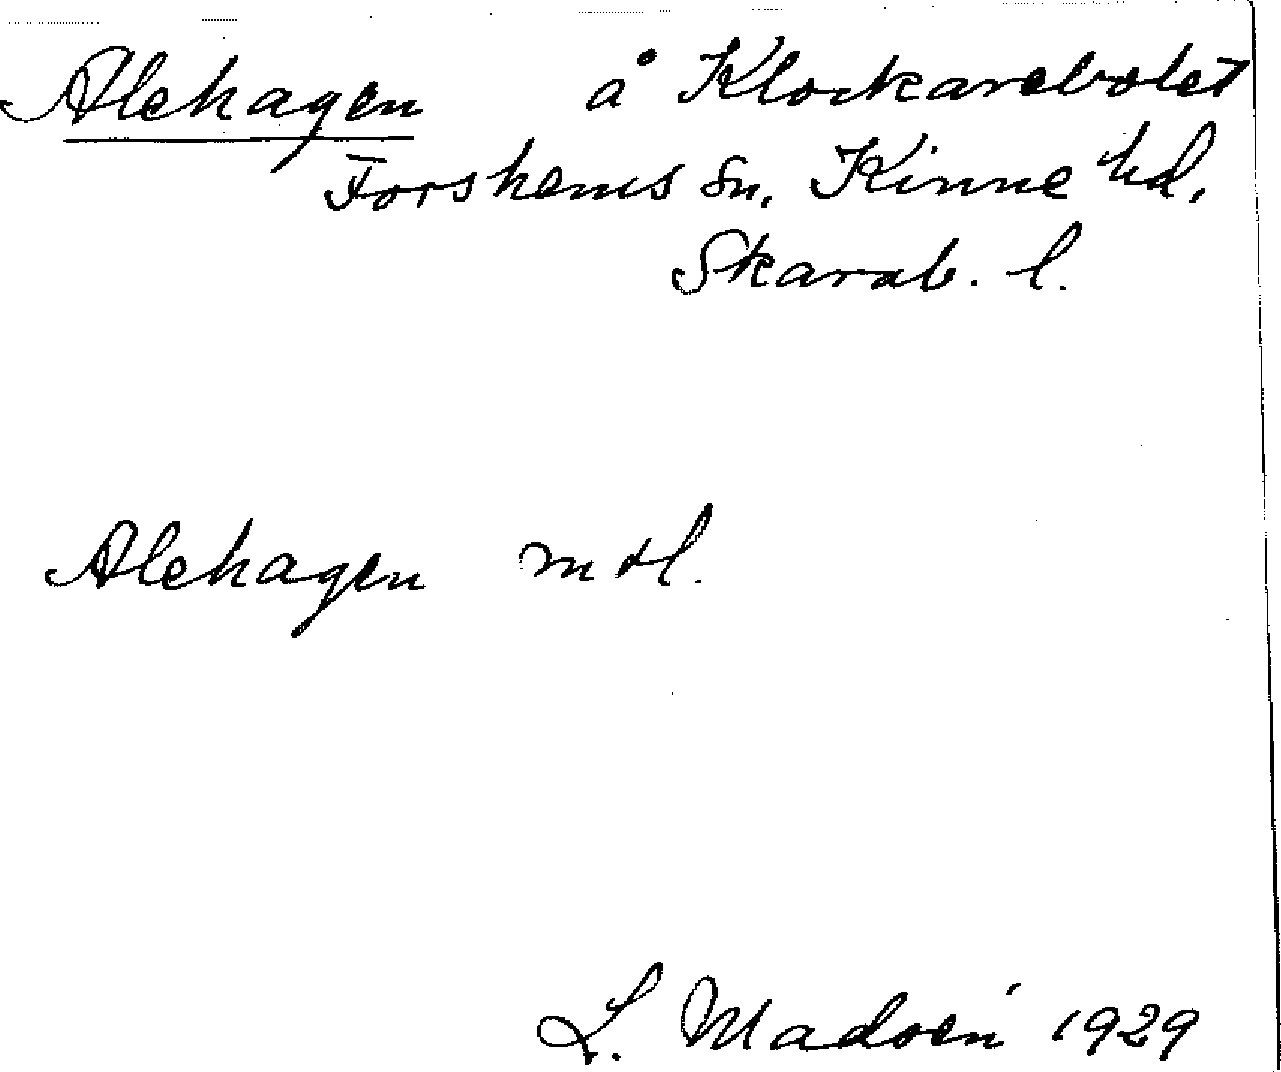 Alehagen å Klockarebolet
Forshems Sn. Kinne hd,
Skarab. l.
Alehagen mtl.
L. Madsén 1929